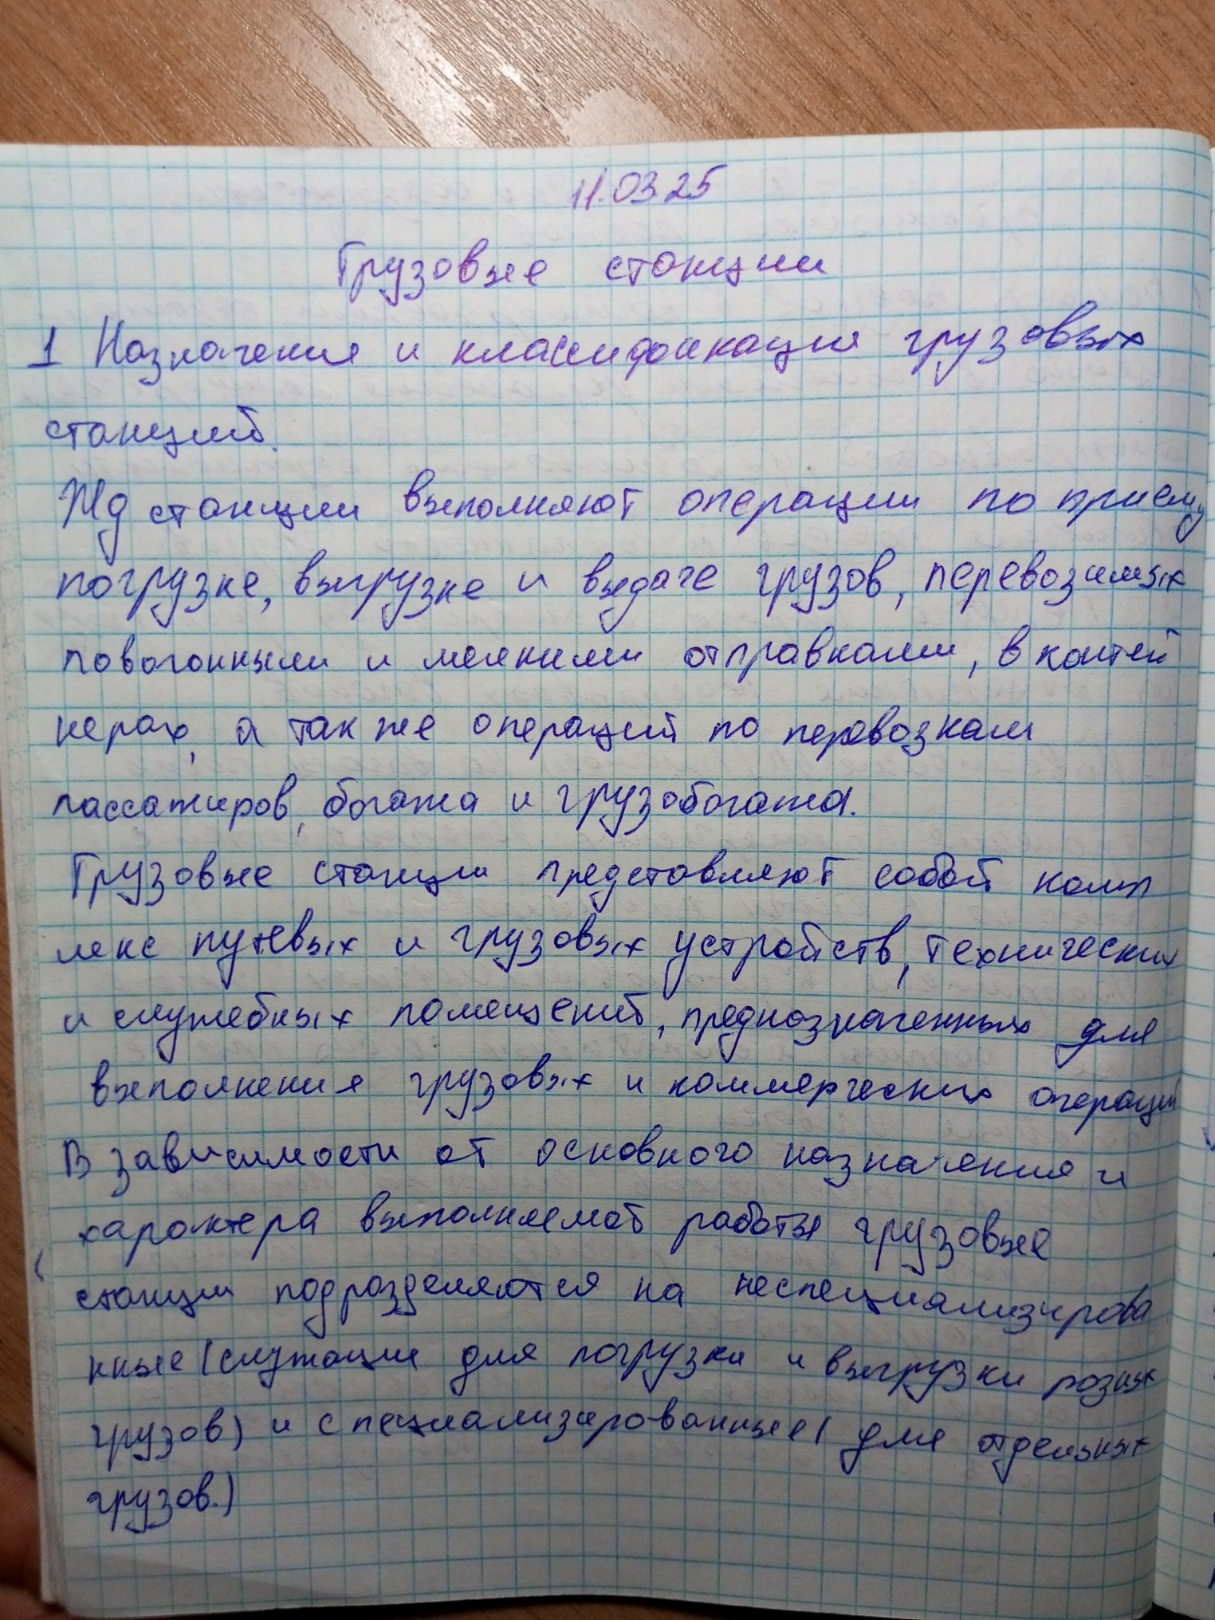 11.03.25
Грузовые станции
1 Назначения и классификация грузовых
станций.
Жд станции выполняют операции по приему
погрузке, выгрузке и выдаче грузов, перевозимых
повагонными и мелкими отправками, в контей
нерах, а так же операций по перевозкам
пассажиров, багажа и грузобагажа.
Грузовые станции представляют собой комп
лекс путевых и грузовых устройств, технических
и служебных помещений, предназначенных для
выполнения грузовых и коммерческих операций
В зависимости от основного назначения и
характера выполняемой работы грузовые
станции подразделяются на неспециализирова
нные (служащие для погрузки и выгрузки разных
грузов) и специализированные (для отдельных
грузов.)